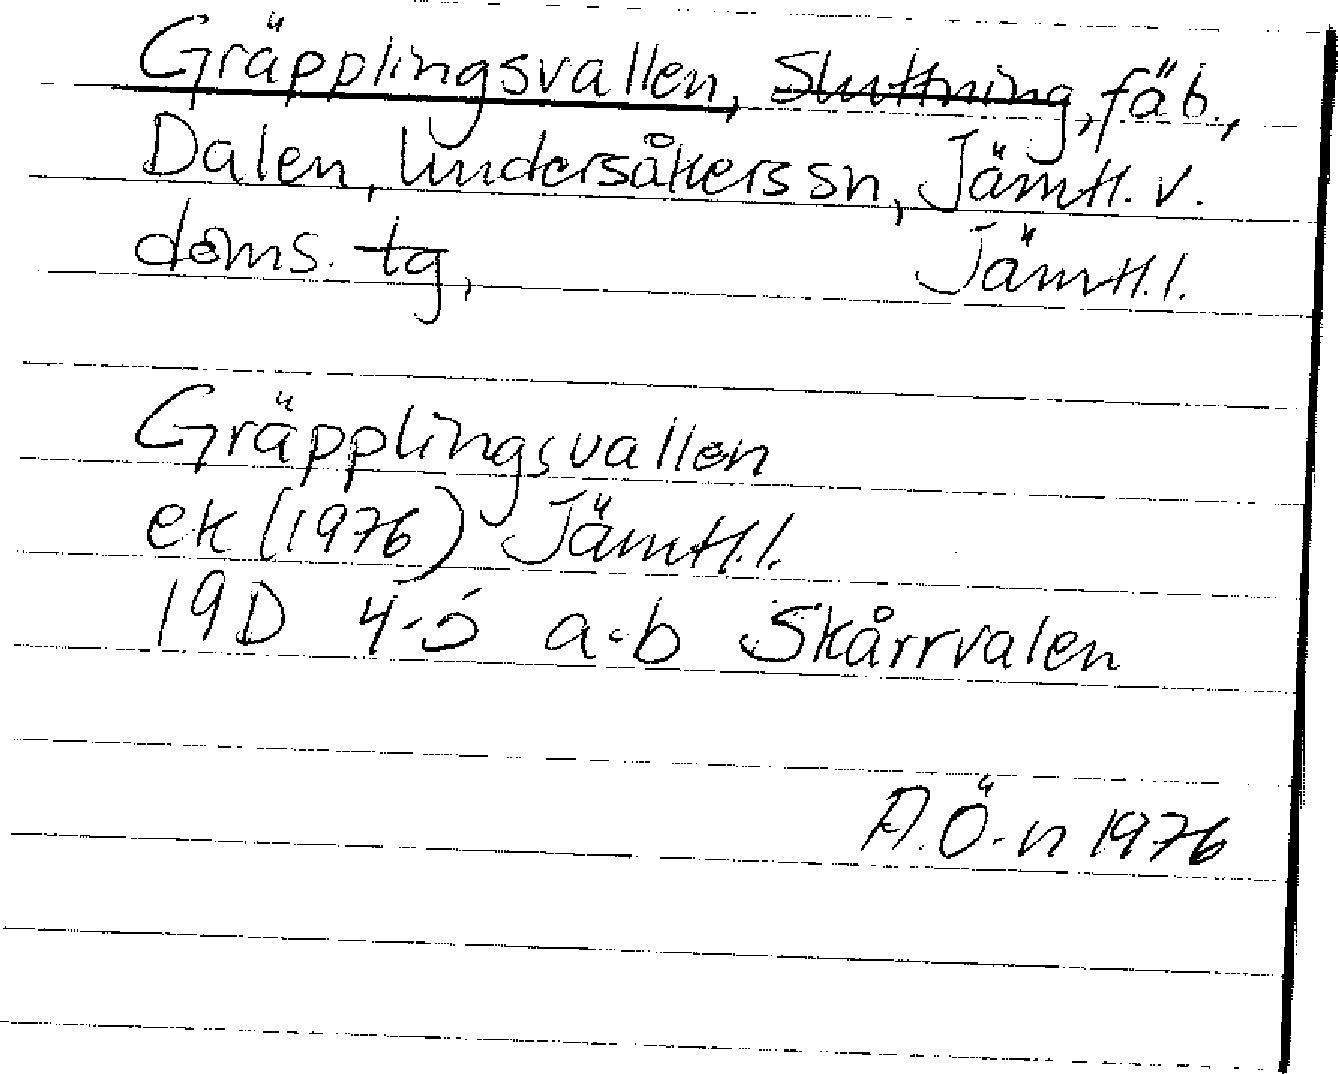 Gräpplingsvallen, Sluttning, fäb.,
Dalen, Undersåkers sn, Jämtl. v.
doms. tg, Jämtl. l.
Gräpplingsvallen
ek (1976) Jämtl. l.
19D 4-5 a-b Skårrvalen
A.Ö-n 1976